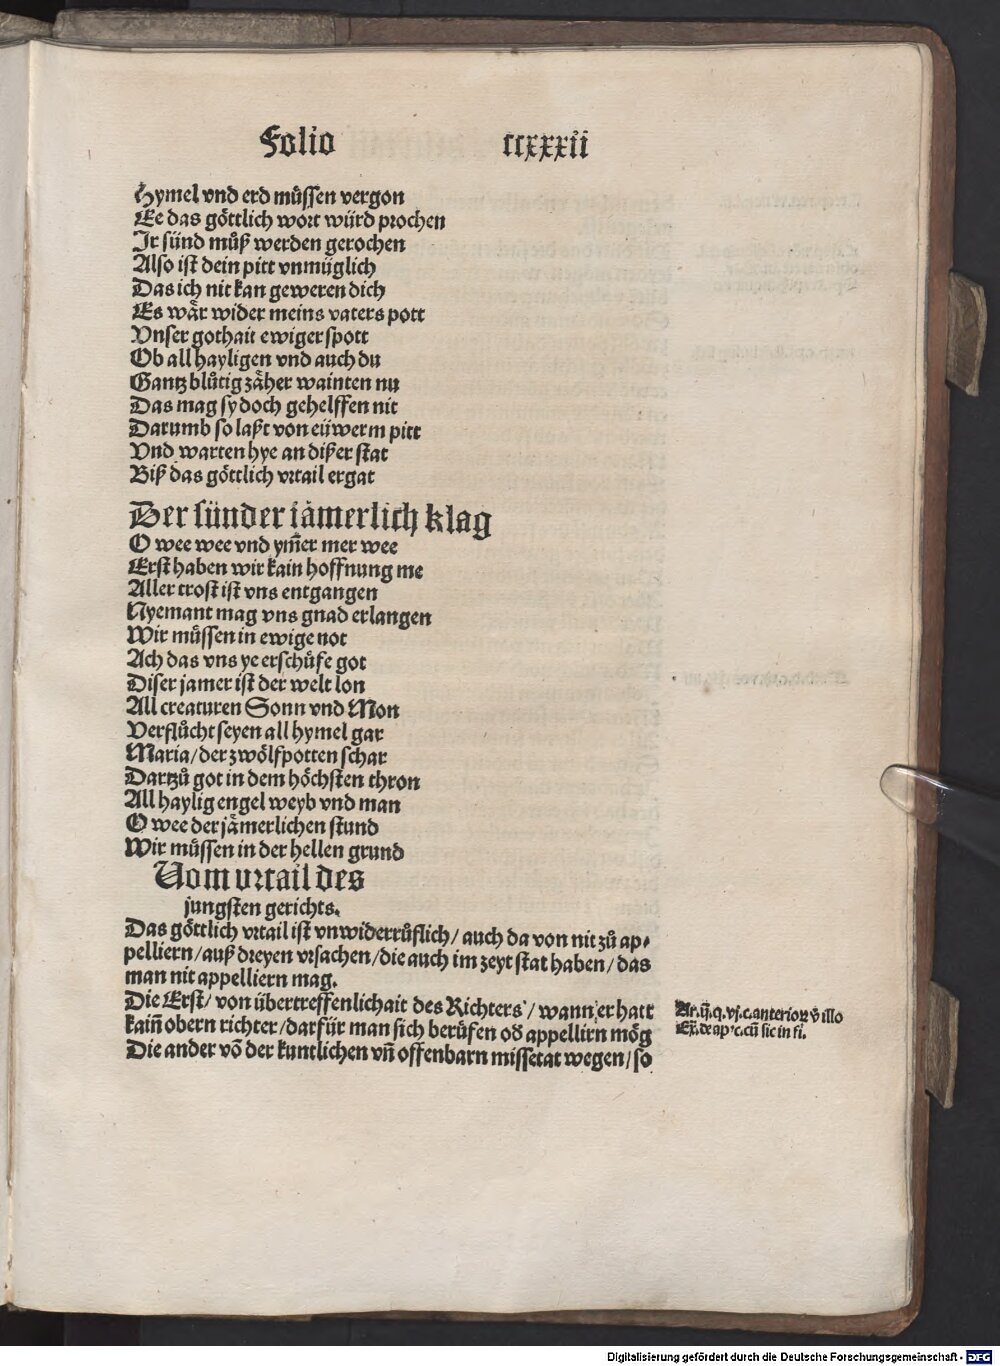 Folio ccxxxii
Hymel vnd erd müssen vergon
Ee das göttlich wort würd prochen
Ir sünd muͦß werden gerochen
Also ist dein pitt vnmüglich
Das ich nit kan geweren dich
Es wår wider meins vaters pott
Vnser gothait ewiger spott
Ob all hayligen vnd auch du
Gantz bluͦtig zäher wainten nu
Das mag sy doch gehelffen nit
Darumb so laßt von eüwerm pitt
Vnd warten hye an dißer stat
Biß das göttlich vrtail ergat
Der sünder jämerlich klag
O wee wee vnd ym̄er mer wee
Erst haben wir kain hoffnung me
Aller trost ist vns entgangen
Nyemant mag vns gnad erlangen
Wir müssen in ewige not
Ach das vns ye erschuͦfe got
Diser jamer ist der welt lon
All creaturen Sonn vnd Mon
Verfluͦcht seyen all hymel gar
Maria/der zwölfpotten schar
Dartzuͦ got in dem höchsten thron
All haylig engel weyb vnd man
O wee der jämerlichen stund
Wir müssen in der hellen grund
Vom vrtail des
jungsten gerichts.
Das göttlich vrtail ist vnwiderruͦflich/ auch da von nit zuͦ ap-
pelliern/auß dreyen vrsachen/die auch im zeyt stat haben/das
man nit appelliern mag.
Die Erst/ von übertreffenlichait des Richters/ wann er hatt
kain̄ obern richter/darfür man sich beruͦfen od̕ appellirn mög
Die ander vō der kuntlichen vn̄ offenbarn missetat wegen/so
Ar. ij. q. vj. c. anterioꝝ v̕ illo
Ex. de ap. c. cū sic in fi.
Digitalisierung gefördert durch die Deutsche Forschungsgemeinschaft - DFG